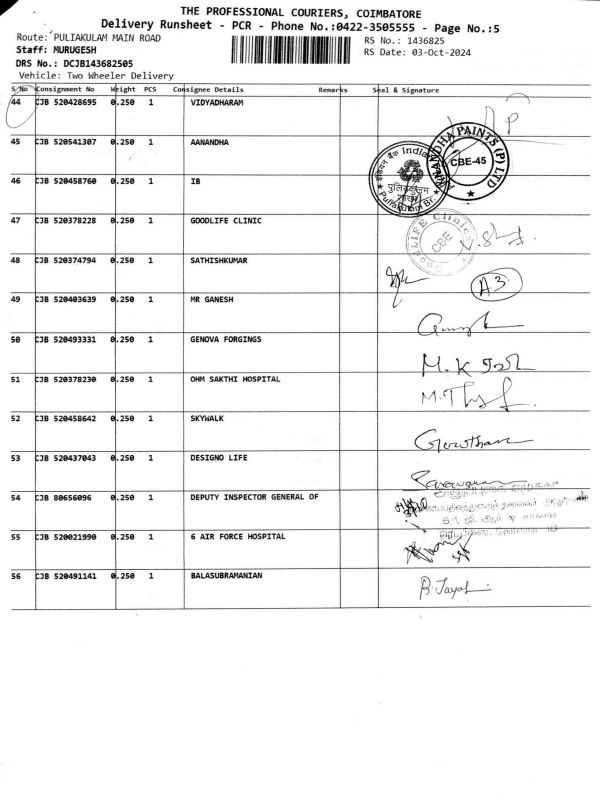 THE PROFESSIONAL COURIERS, COIMBATORE
Delivery Runsheet - PCR - Phone No.:0422-3505555 - Page No.:5
Route: PULIAKULAM MAIN ROAD
RS No.: 1436825
Staff: MURUGESH
RS Date: 03-Oct-2024
DRS No.: DCJB143682505
Vehicle: Two Wheeler Delivery
S/No Consignment No Weight PCS Consignee Details Remarks Seal & Signature
44 CJB 520428695 0.250 1 VIDYADHARAM
45 CJB 541307 0.250 1 AANANDHA
PAINTS (P) LTD
CBE-45
46 CJB 520458760 0.250 1 IB
इंडियन बैंक Indian
Puliakulam Br.
47 CJB 520378228 0.250 1 GOODLIFE CLINIC
LIFE Clinics
CBE
48 CJB 520374794 0.250 1 SATHISHKUMAR
A3
49 CJB 520403639 0.250 1 MR GANESH
50 CJB 520493331 0.250 1 GENOVA FORGINGS
M.K
51 CJB 520378230 0.250 1 OHM SAKTHI HOSPITAL
52 CJB 520458642 0.250 1 SKYWALK
Gowtham
53 CJB 520437043 0.250 1 DESIGNO LIFE
54 CJB 80656096 0.250 1 DEPUTY INSPECTOR GENERAL OF
55 CJB 520021990 0.250 1 6 AIR FORCE HOSPITAL
56 CJB 520491141 0.250 1 BALASUBRAMANIAN